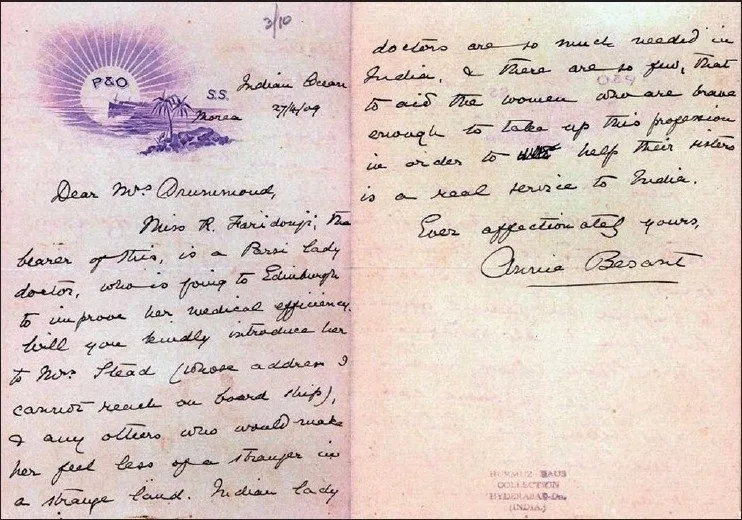 3/10
P&O
S.S.
Indian Ocean
Morea
27/4/09
Dear Mrs Drummond,
Miss R. Faridonji, the
bearer of this, is a Parsi lady
doctor, who is going to Edinburgh
to improve her medical efficiency.
Will you kindly introduce her
to Mrs Stead (whose address I
cannot reach on board ship),
& any others who would make
her feel less of a stranger in
a strange land. Indian lady
doctors are so much needed in
India, & there are so few, that
to aid the women who are brave
enough to take up this profession
in order to help their sisters
is a real service to India.
Ever affectionately yours,
Annie Besant
HORMUZ KAUS
COLLECTION
HYDERABAD-Dn.
(INDIA)